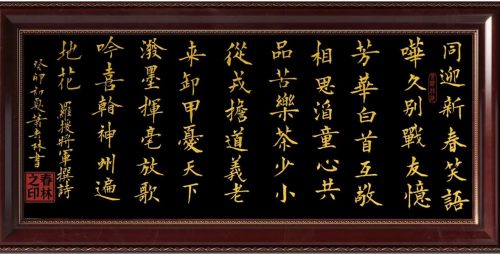 同迎新春笑語
嘩久别戰友憶
芳華白首互敬
相思滔童心共
品苦樂茶少小
從戎擔道義老
来卸甲憂天下
潑墨揮毫放歌
吟喜翰神州遍
地花
羅援將軍撰詩
癸卯初夏
春林書
春林之印